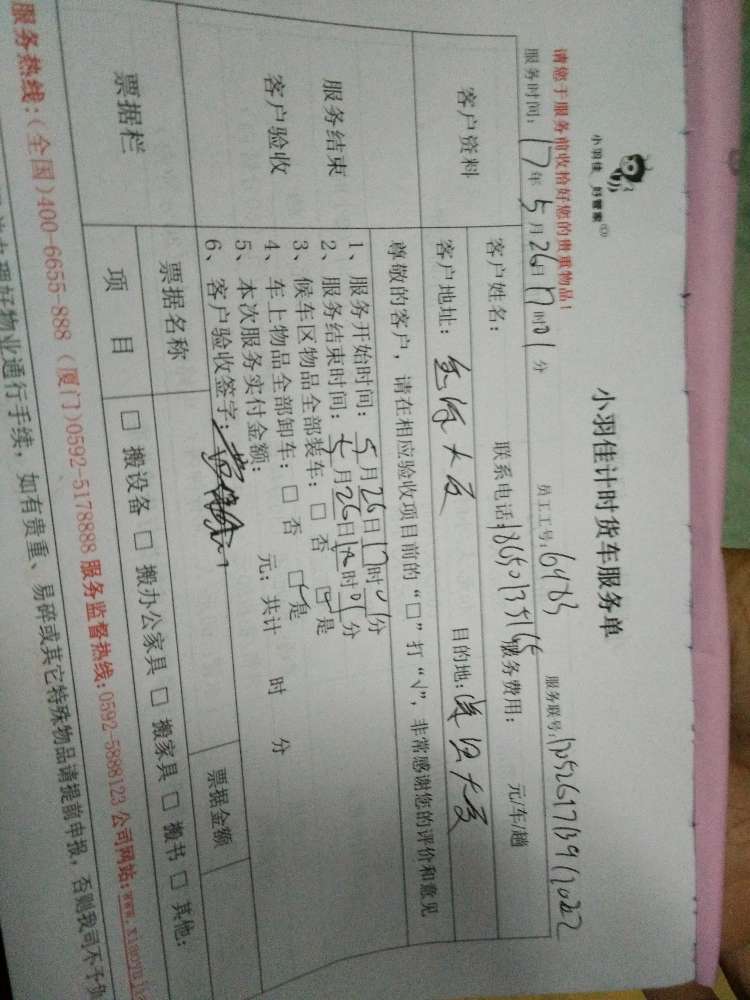 小羽佳 好管家
小羽佳计时货车服务单
请您于服务前收拾好您的贵重物品！
服务时间：17年5月26日17时01分 员工工号：6483 服务联号：
客户资料 客户姓名： 联系电话：18650135165 服务费用： 元/车/趟
客户地址： 大厦 目的地： 大厦
服务结束
客户验收
尊敬的客户，请在相应验收项目前的“□”打“√”，非常感谢您的评价和意见
1、服务开始时间：5月26日17时01分
2、服务结束时间：5月26日 时01分
3、候车区物品全部装车：□ 否 □ 是
4、车上物品全部卸车：□ 否 □ 是
5、本次服务实付金额： 元；共计 时 分
6、客户验收签字：
票据栏 票据名称 票据金额
项 目 □ 搬设备 □ 搬办公家具 □ 搬家具 □ 搬书 □ 其他：
服务热线：(全国)400-6655-888 (厦门)0592-5178888 服务监督热线：0592-5888123 公司网站：www.xiaoyuj
办理好物业通行手续，如有贵重、易碎或其它特殊物品请提前申报，否则我司不予